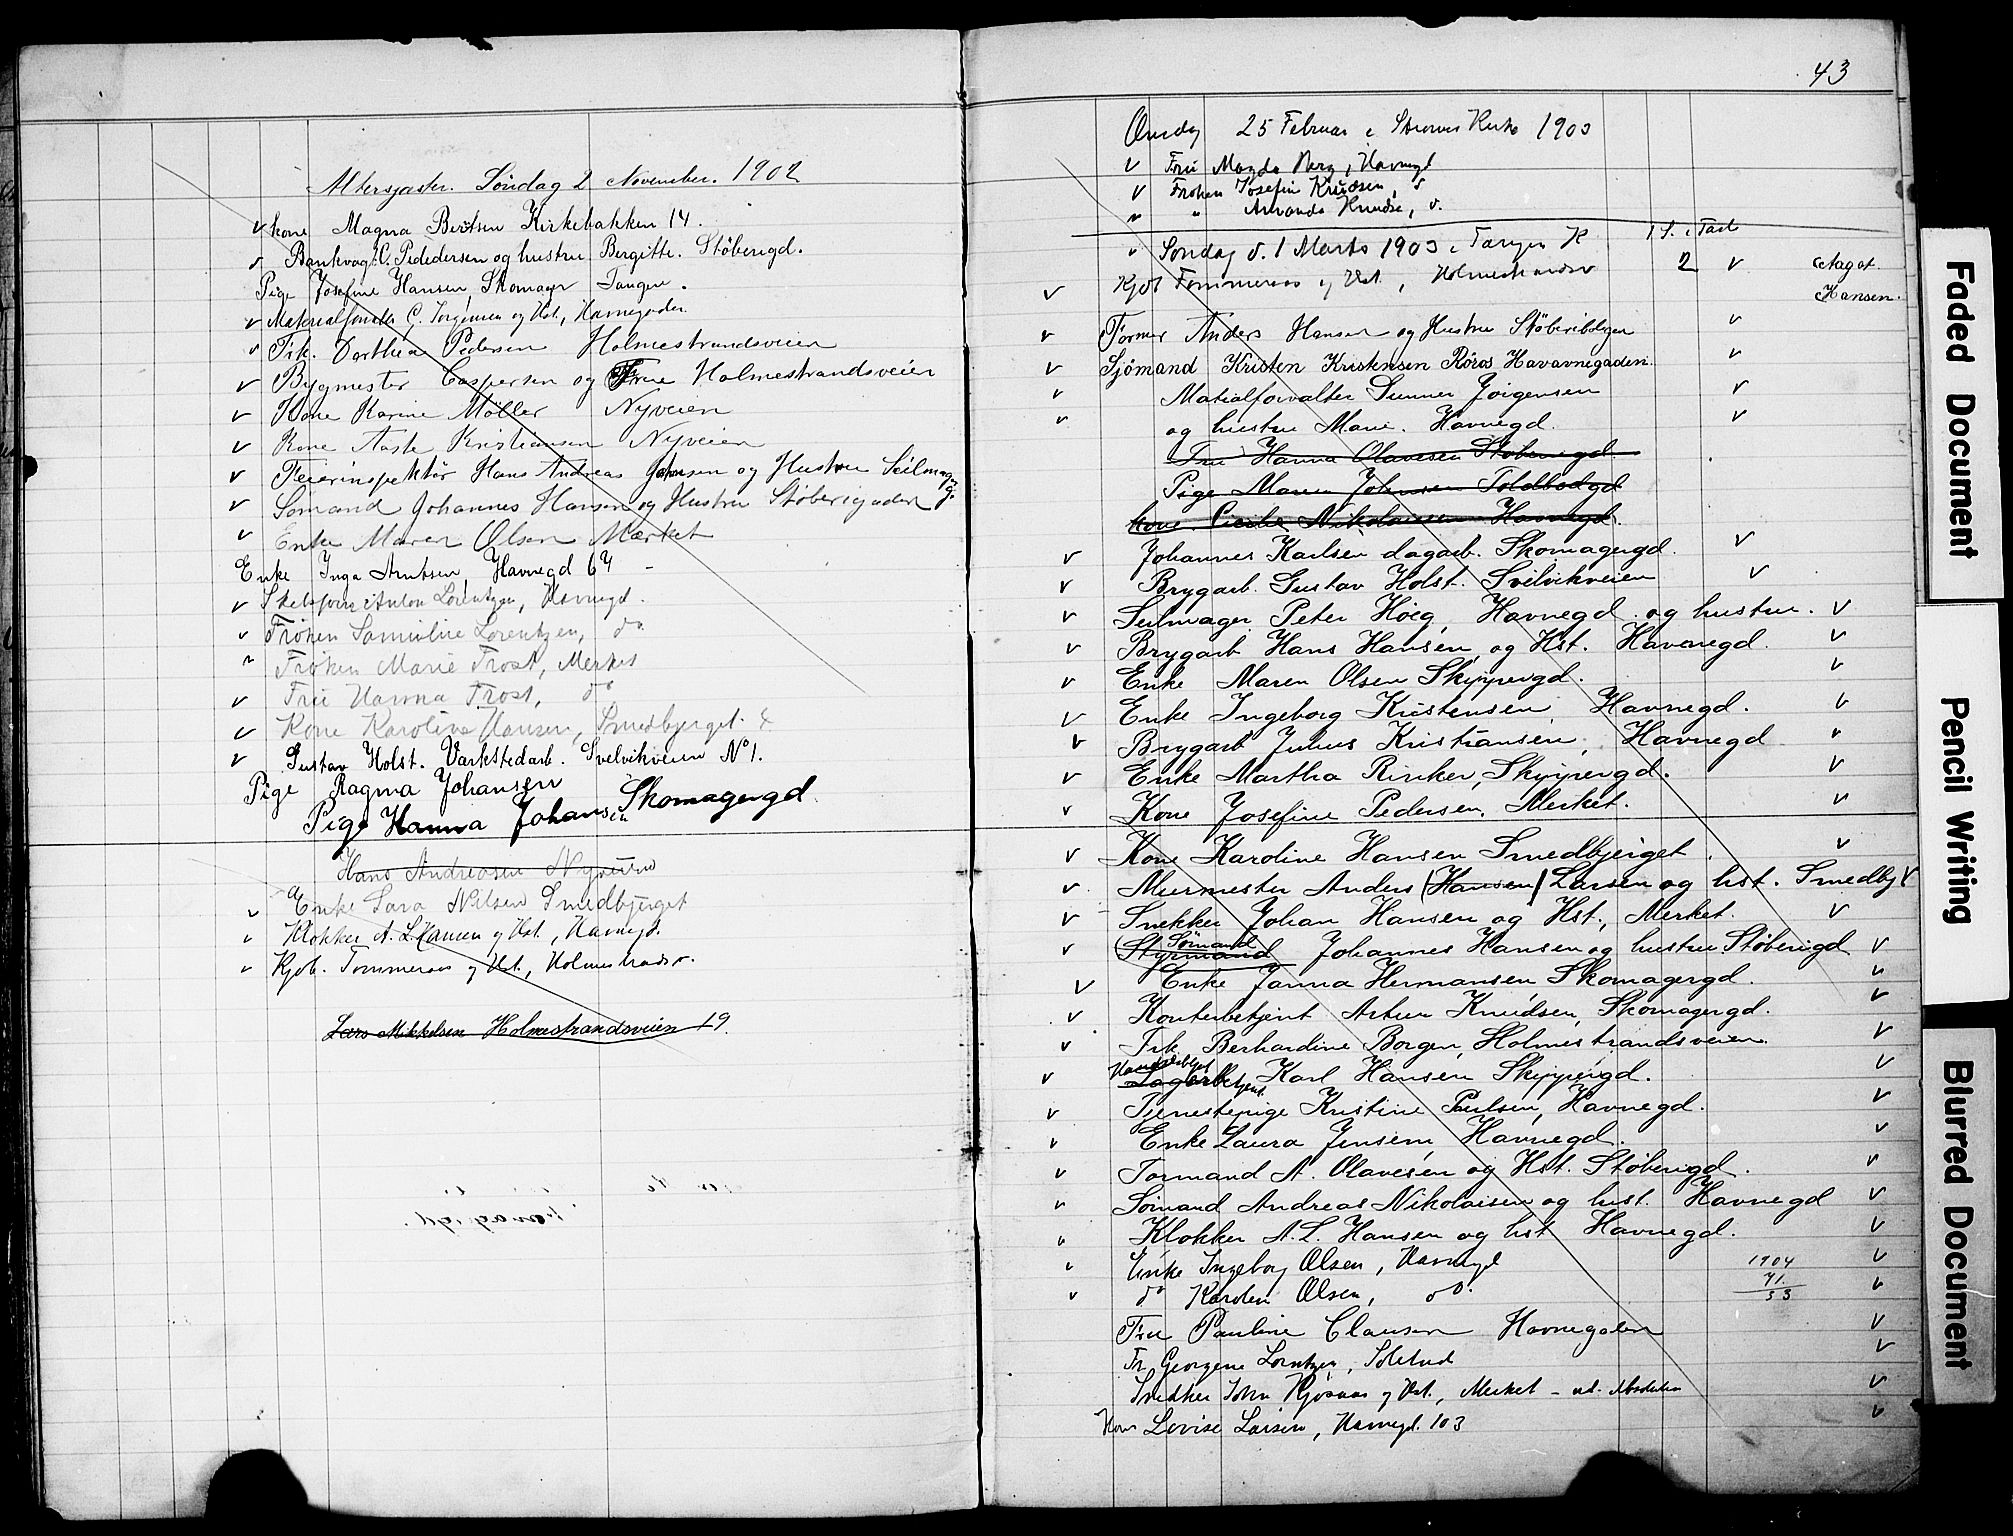 Altersgjæster. Söndag 2 November. 1902
v Kone Magna Berntsen Kirkebakken 14.
v Bankvagt. C. Pededersen og hustru Bergitte. Stöberigd.
Pige Josefine Hansen, Skomager Tangen.
v Materialforvalter G. Jorgensen og Hst., Havnegaden
v Frk. Dorthea Pedersen Holmestrandsveien
v Bygmester Caspersen og Frue Holmestrandsveien
v Kone Karine Möller Nyveien
v Kone Aaste Kristiansen Nyveien
v Feierinspektör Hans Andreas Johnsen og Hustru Seilmagergd
v Sömand Johannes Hansen og Hustru Stöberigaden
v Enke Maren Olsen Mærket
Enke Inga Arntsen, Havnegd 64 -
v Anton Lorentzen, Havnegd.
v Fröken Lorentzen, do
v Frøken Marie Frost, Merket
v Frü Hanna Frost, do
v Kone Karoline Hansen, Smedbjerget.
v Gustav Holst. Værkstedarb. Svelvikveien No 1.
Pige Ragna Johansen
Pige Hanna Johansen Skomagergd.
Hans Andreasen Nyveien
v Enke Sara Nilsen Smedbjerget
v Klokker A. L. Hansen og Hst., Havnegd.
v Kjöb. Tommeraas og Hst., Holmestrandsv.
Lars Mikkelsen Holmestrandsveien 19.
43
Onsdag 25 Februar i Strømsø Kirke 1903
v Frü Magda Berg, Havnegd
v Froken Josefin Knudsen, d
v " Amanda Knudse, d.
v Søndag d. 1 Marts 1903 i Tangen K
v Kjöb Tommeraas og Hst., Holmestrandsv 2 v Aagot Hansen.
v Former Anders Hansen og Hustru Støberibolgen v
v Sjömand Kristen Kristensen Röros Havavnegaden. v
v Matialforvalter Gunner Jörgensen v
v og hustru Marie. Havnegd. v
Frü Hanna Olavesen Støberigd.
Pige Maren Johnsen Toldbodgd
Kone Cecilie Nikolaisen Havnegd.
v Johannes Karlsen dagarb. Skomagergd. v
v Brygarb. Gustav Holst. Svelvikveien v
v Seilmager Peter Höeg, Havnegd. og hustru. v
v Brygarb Hans Hansen, og Hst. Havenegd. v
v Enke Maren Olsen Skippergd. v
v Enke Ingeborg Kristensen, Havnegd. v
v Brygarb Julius Kristiansen, Havnegd v
v Enke Martha Rinker, Skippergd. v
v Kone Josefine Pedersen, Merket. v
v Kone Karoline Hansen Smedbjerget v
v Muermester Anders (Hansen) Larsen og hst. Smedbj v
v Snekker Johan Hansen og Hst., Merket. v
v (Styrmand Sömand Johannes Hansen og hustru Støberigd v
v Enke Janna Hermansen Skomagergd. v
v Kontorbetjent Artur Knudsen, Skomagergd. v
v Frk Berhardine Borgen, Holmestrandsveien v
v Lagerbetjent Karl Hansen Skippergd. v
v Tjenestepige Kristine Paulsen, Havnegd. v
v Enke Laura Jensen, Havnegd. v
v Formand A. Olavesen og Hst. Støberigd. v
v Sømand Andreas Nikolaisen og hust. Havnegd v
v Klokker A. L. Hansen og hst Havnegd. v
v Enke Ingeborg Olsen, Havnegd v
1904
71
33
v do Karolen Olsen, do. v
Fru Pauline Clausen Havnegaden v
Fr. Georgene Lorntzen, v
Snedker John Kjösnæs og Hst., Merket v
Kone Lovise Larsen, Havnegd. 103 v
Faded Document
Pencil Writing
Blurred Document